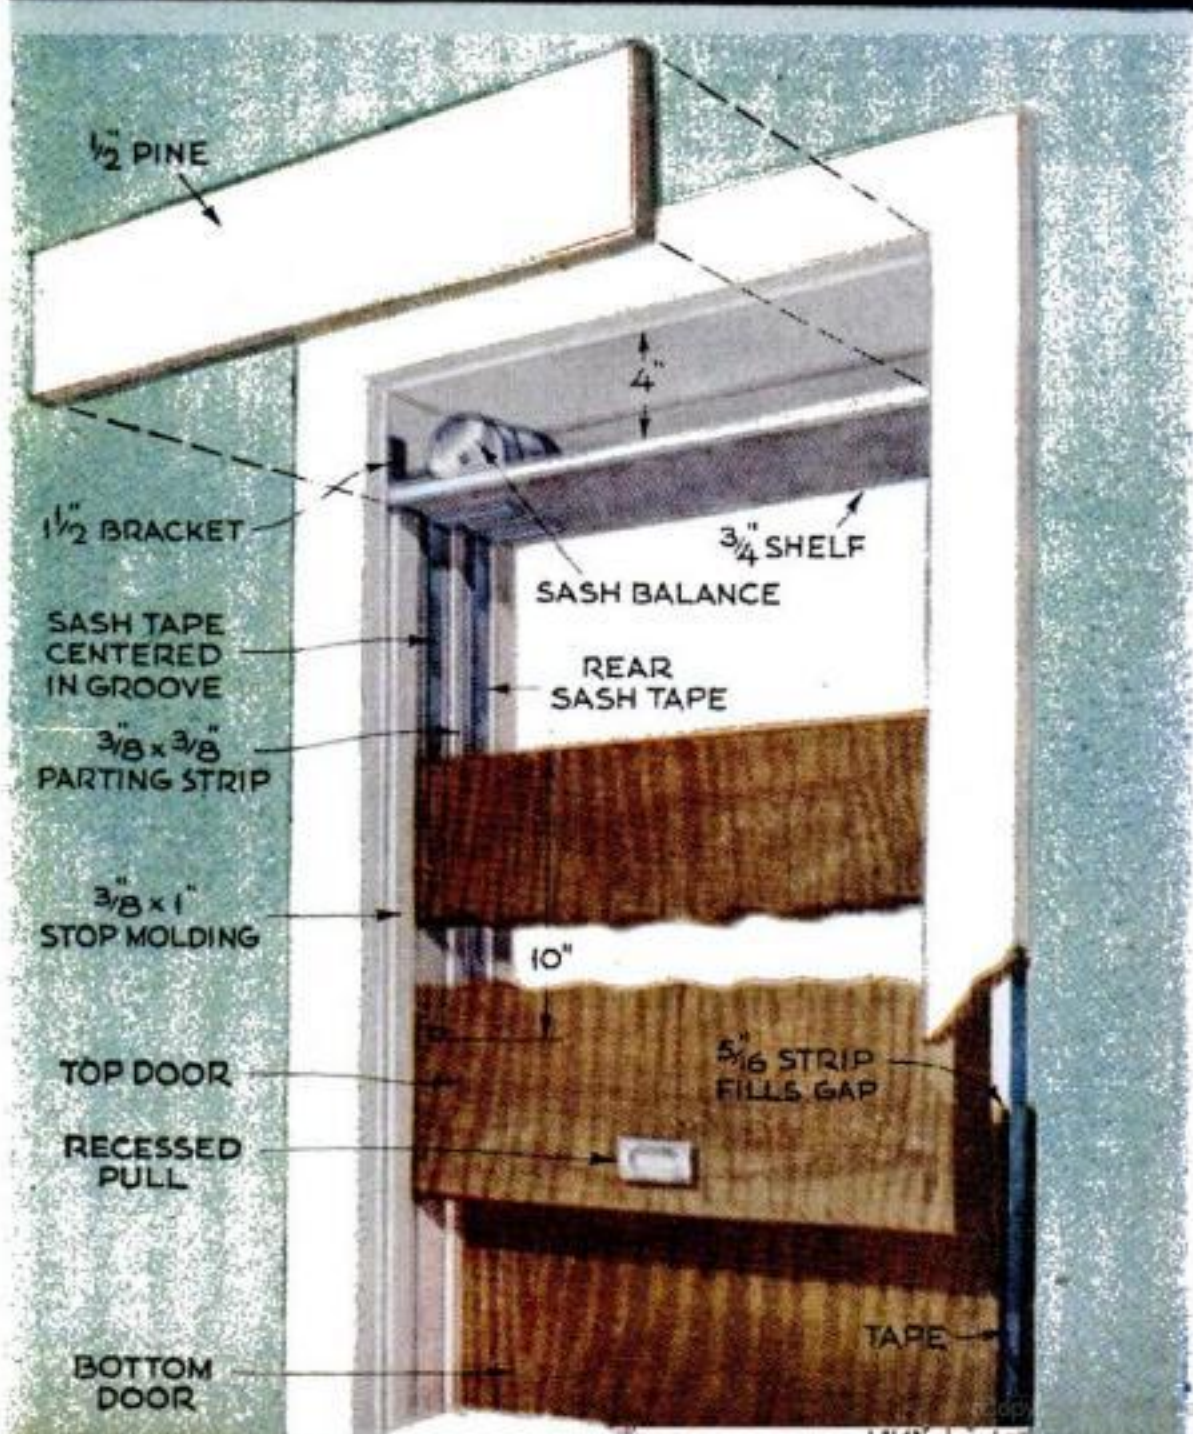 1/2" PINE
4"
1 1/2" BRACKET
3/4" SHELF
SASH BALANCE
SASH TAPE
CENTERED
IN GROOVE
REAR
SASH TAPE
3/8 x 3/8"
PARTING STRIP
3/8" x 1"
STOP MOLDING
10"
TOP DOOR
5/16" STRIP
FILLS GAP
RECESSED
PULL
TAPE
BOTTOM
DOOR